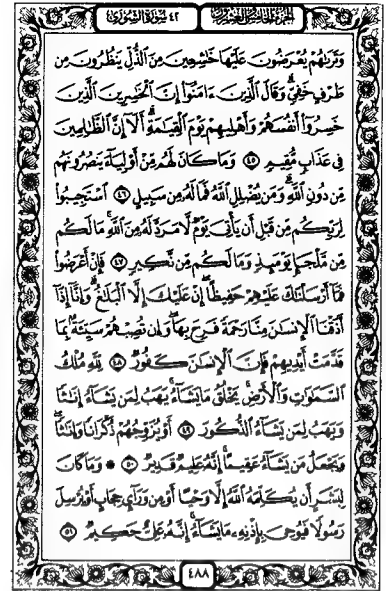 الجزء الخامس والعشرون
٤٢ سورة الشورى
وَتَرَىٰهُمْ يُعْرَضُونَ عَلَيْهَا خَٰشِعِينَ مِنَ ٱلذُّلِّ يَنظُرُونَ مِن
طَرْفٍ خَفِىٍّ ۗ وَقَالَ ٱلَّذِينَ ءَامَنُوٓا۟ إِنَّ ٱلْخَٰسِرِينَ ٱلَّذِينَ
خَسِرُوٓا۟ أَنفُسَهُمْ وَأَهْلِيهِمْ يَوْمَ ٱلْقِيَٰمَةِ ۗ أَلَآ إِنَّ ٱلظَّٰلِمِينَ
فِى عَذَابٍ مُّقِيمٍ ٤٥ وَمَا كَانَ لَهُم مِّنْ أَوْلِيَآءَ يَنصُرُونَهُم
مِّن دُونِ ٱللَّهِ ۗ وَمَن يُضْلِلِ ٱللَّهُ فَمَا لَهُۥ مِن سَبِيلٍ ٤٦ ٱسْتَجِيبُوا۟
لِرَبِّكُم مِّن قَبْلِ أَن يَأْتِىَ يَوْمٌ لَّا مَرَدَّ لَهُۥ مِنَ ٱللَّهِ ۚ مَا لَكُم
مِّن مَّلْجَإٍ يَوْمَئِذٍ وَمَا لَكُم مِّن نَّكِيرٍ ٤٧ فَإِنْ أَعْرَضُوا۟
فَمَآ أَرْسَلْنَٰكَ عَلَيْهِمْ حَفِيظًا ۖ إِنْ عَلَيْكَ إِلَّا ٱلْبَلَٰغُ ۗ وَإِنَّآ إِذَآ
أَذَقْنَا ٱلْإِنسَٰنَ مِنَّا رَحْمَةً فَرِحَ بِهَا ۖ وَإِن تُصِبْهُمْ سَيِّئَةٌۢ بِمَا
قَدَّمَتْ أَيْدِيهِمْ فَإِنَّ ٱلْإِنسَٰنَ كَفُورٌ ٤٨ لِّلَّهِ مُلْكُ
ٱلسَّمَٰوَٰتِ وَٱلْأَرْضِ ۚ يَخْلُقُ مَا يَشَآءُ ۚ يَهَبُ لِمَن يَشَآءُ إِنَٰثًا
وَيَهَبُ لِمَن يَشَآءُ ٱلذُّكُورَ ٤٩ أَوْ يُزَوِّجُهُمْ ذُكْرَانًا وَإِنَٰثًا ۖ
وَيَجْعَلُ مَن يَشَآءُ عَقِيمًا ۚ إِنَّهُۥ عَلِيمٌ قَدِيرٌ ٥٠ ۞ وَمَا كَانَ
لِبَشَرٍ أَن يُكَلِّمَهُ ٱللَّهُ إِلَّا وَحْيًا أَوْ مِن وَرَآئِ حِجَابٍ أَوْ يُرْسِلَ
رَسُولًا فَيُوحِىَ بِإِذْنِهِۦ مَا يَشَآءُ ۚ إِنَّهُۥ عَلِىٌّ حَكِيمٌ ٥١
٤٨٨